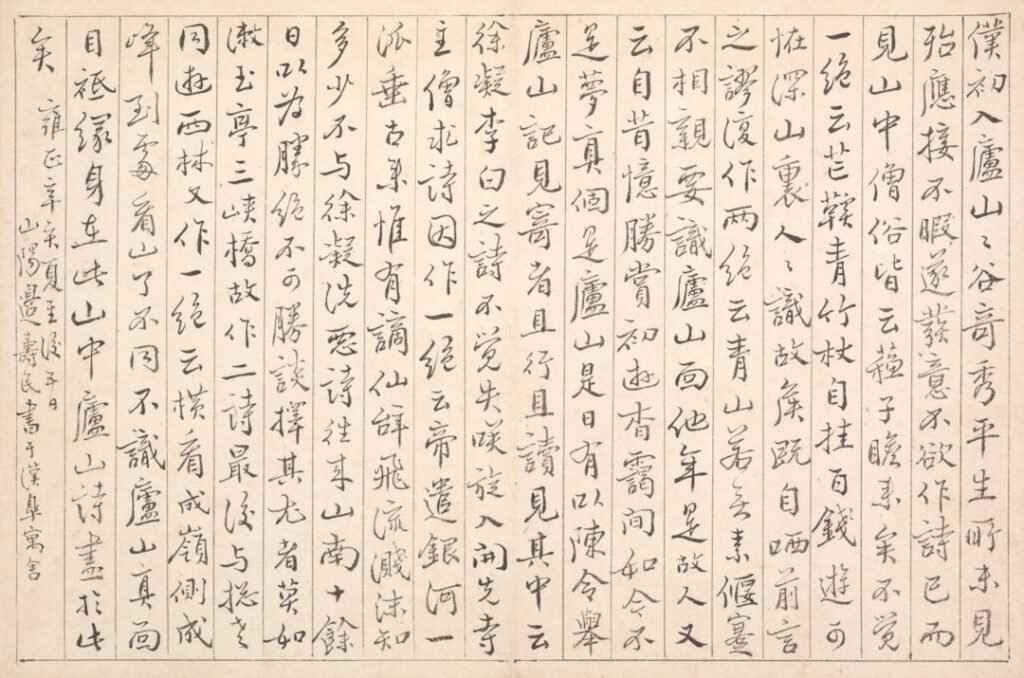 僕初入廬山々谷奇秀平生所未見
殆應接不暇遂發意不欲作詩已而
見山中僧俗皆云蘇子瞻来矣不覚
一絕云芒鞵青竹杖自挂百錢遊可
怪深山裏人々識故侯既自哂前言
之謬復作兩絕云青山若无素偃蹇
不相親要識廬山面他年是故人又
云自昔憶勝賞初遊杳靄間如今不
是夢真個是廬山是日有以陳令舉
廬山記見寄者且行且讀見其中云
徐凝李白之詩不覚失咲旋入開先寺
主僧求詩因作一絕云帝遣銀河一
派垂古来惟有謫仙辞飛流濺沫知
多少不与徐凝洗惡詩往来山南十餘
日以為勝絕不可勝談擇其尤者莫如
漱玉亭三峽橋故作二詩最後与摠老
同遊西林又作一絕云橫看成嶺側成
峰到處看山了不同不識廬山真面
目祗緣身在此山中廬山詩盡於此
矣
雍正辛亥夏至後五日
山陽邊壽民書于漢皋寓舍